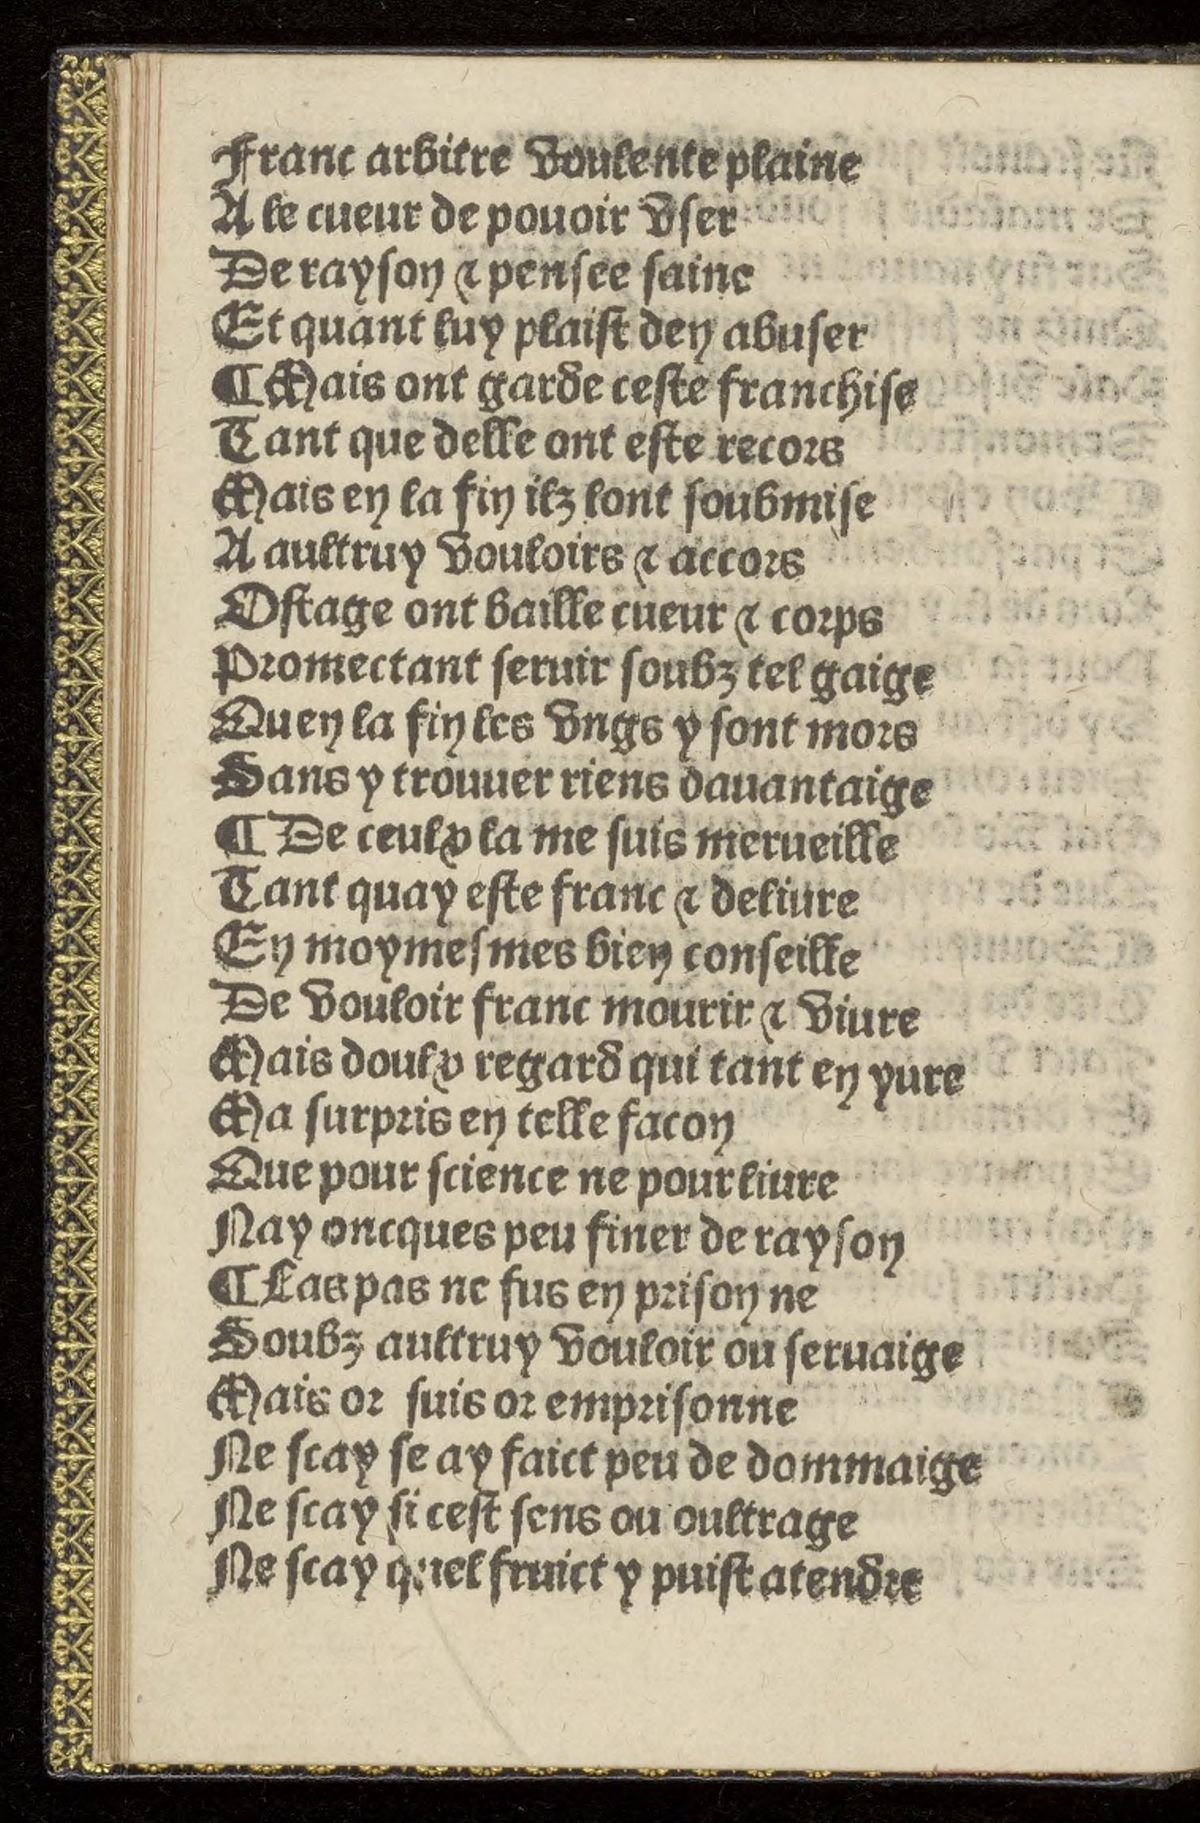 Franc arbitre voulente plaine
A le cueur de pouoir vser
De rayson & pensee saine
Et quant luy plaist den abuser
¶ Mais ont garde ceste franchise
Tant que delle ont este recors
Mais en la fin ilz lont soubmise
A aultruy vouloirs & accors
Ostage ont baille cueur & corps
Promectant seruir soubz tel gaige
Quen la fin les vngs y sont mors
Sans y trouuer riens dauantaige
¶ De ceulx la me suis merueille
Tant quay este franc & deliure
En moymesmes bien conseille
De vouloir franc mourir & viure
Mais doulx regard qui tant en yure
Ma surpris en telle facon
Que pour science ne pour liure
Nay oncques peu finer de rayson
¶ Las pas ne fus en prison ne
Soubz aultruy vouloir ou seruaige
Mais or suis or emprisonne
Ne scay se ay faict peu de dommaige
Ne scay si cest sens ou oultrage
Ne scay quel fruict y puist atendre